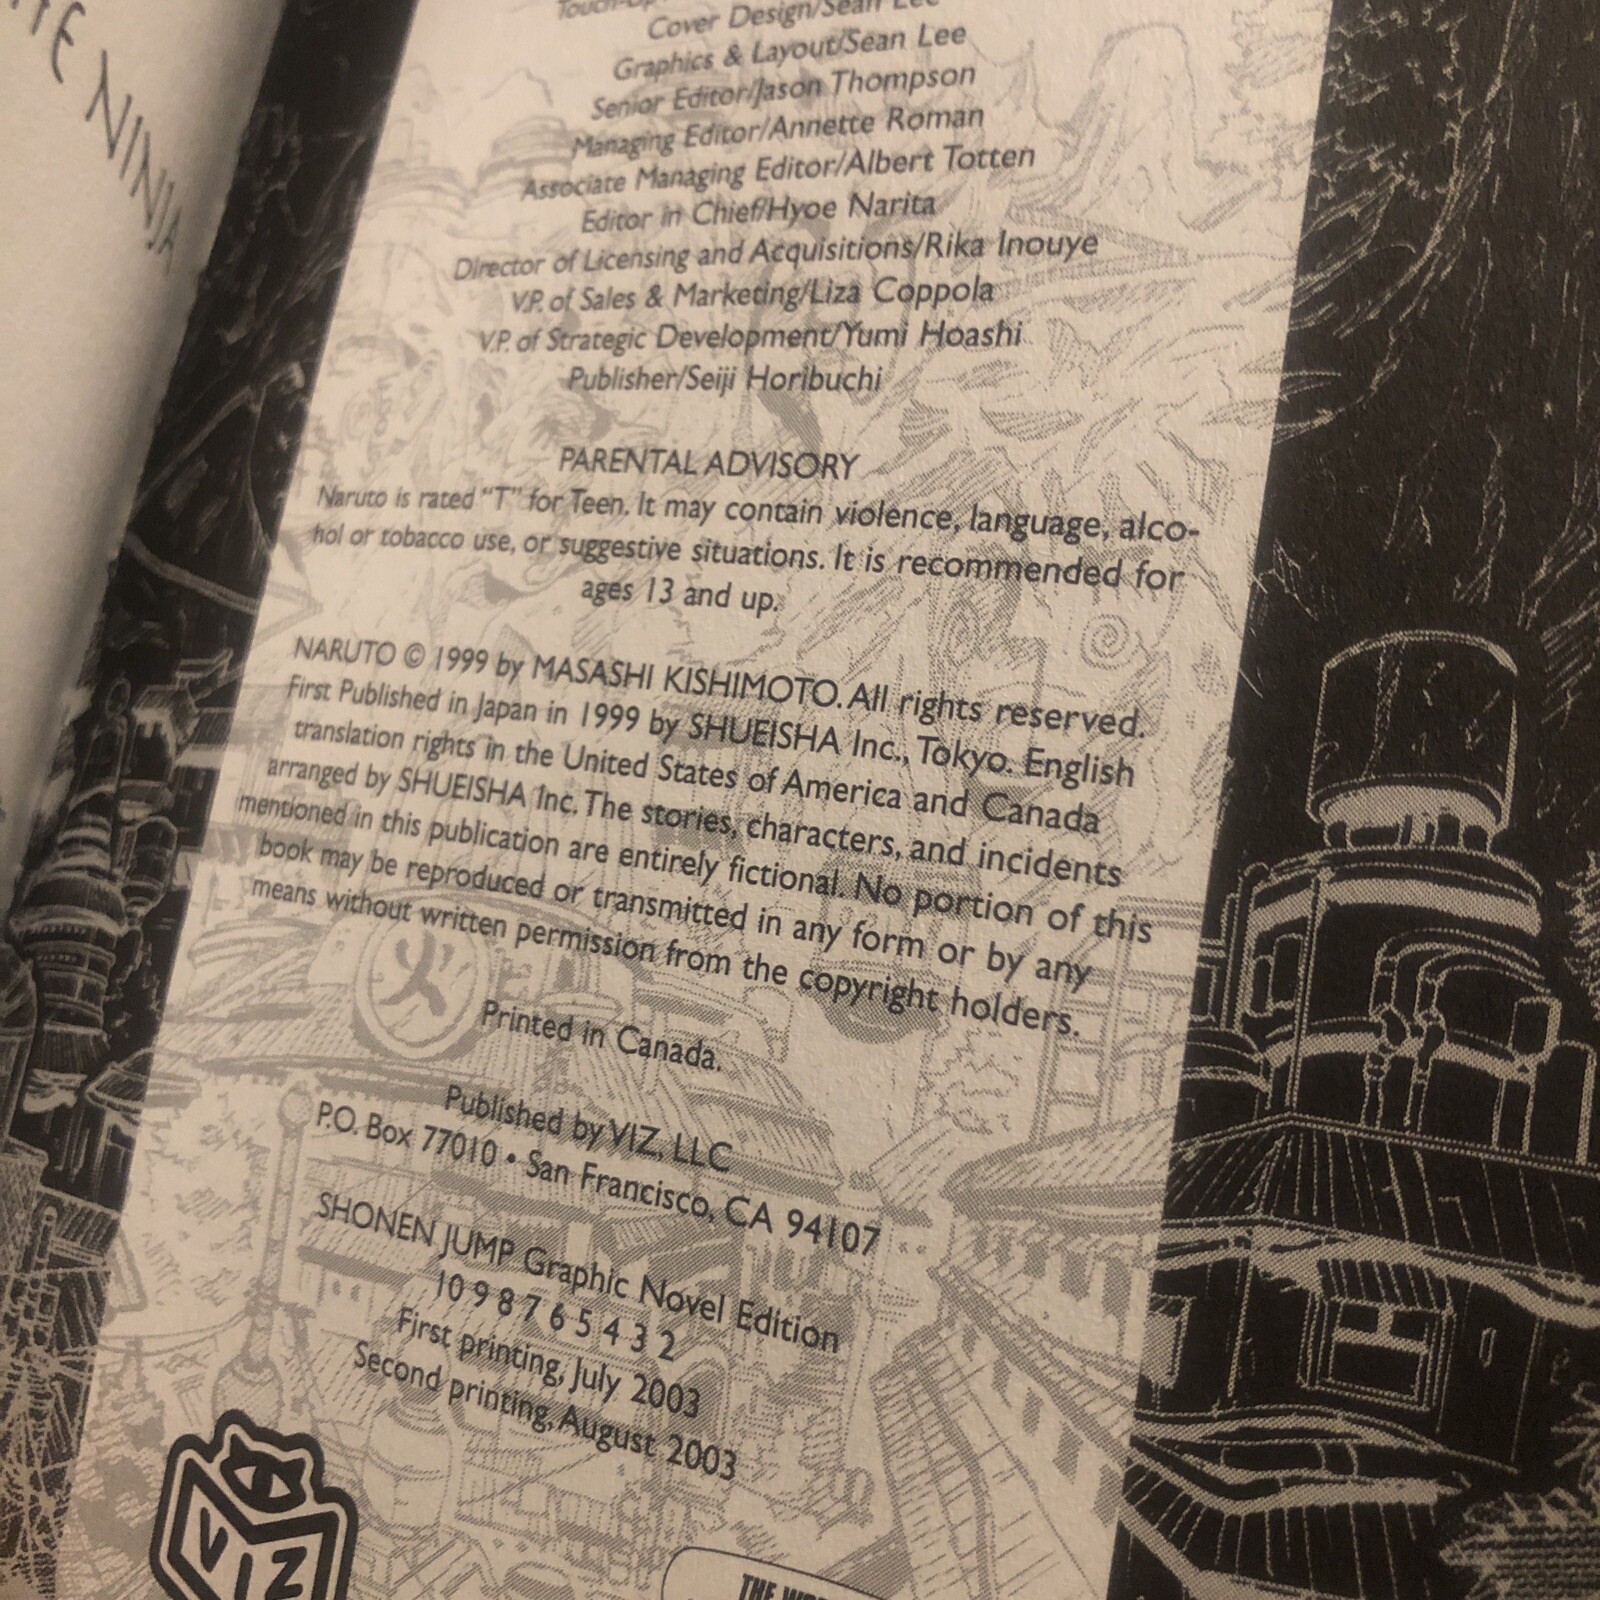 THE NINJA
Touch-Up
Cover Design/Sean Lee
Graphics & Layout/Sean Lee
Senior Editor/Jason Thompson
Managing Editor/Annette Roman
Associate Managing Editor/Albert Totten
Editor in Chief/Hyoe Narita
Director of Licensing and Acquisitions/Rika Inouye
V.P. of Sales & Marketing/Liza Coppola
V.P. of Strategic Development/Yumi Hoashi
Publisher/Seiji Horibuchi
PARENTAL ADVISORY
Naruto is rated "T" for Teen. It may contain violence, language, alco-
hol or tobacco use, or suggestive situations. It is recommended for
ages 13 and up.
NARUTO © 1999 by MASASHI KISHIMOTO. All rights reserved.
First Published in Japan in 1999 by SHUEISHA Inc., Tokyo. English
translation rights in the United States of America and Canada
arranged by SHUEISHA Inc. The stories, characters, and incidents
mentioned in this publication are entirely fictional. No portion of this
book may be reproduced or transmitted in any form or by any
means without written permission from the copyright holders.
火
Printed in Canada.
Published by VIZ, LLC
P.O. Box 77010 • San Francisco, CA 94107
SHONEN JUMP Graphic Novel Edition
10 9 8 7 6 5 4 3 2
First printing, July 2003
Second printing, August 2003
VIZ
THE